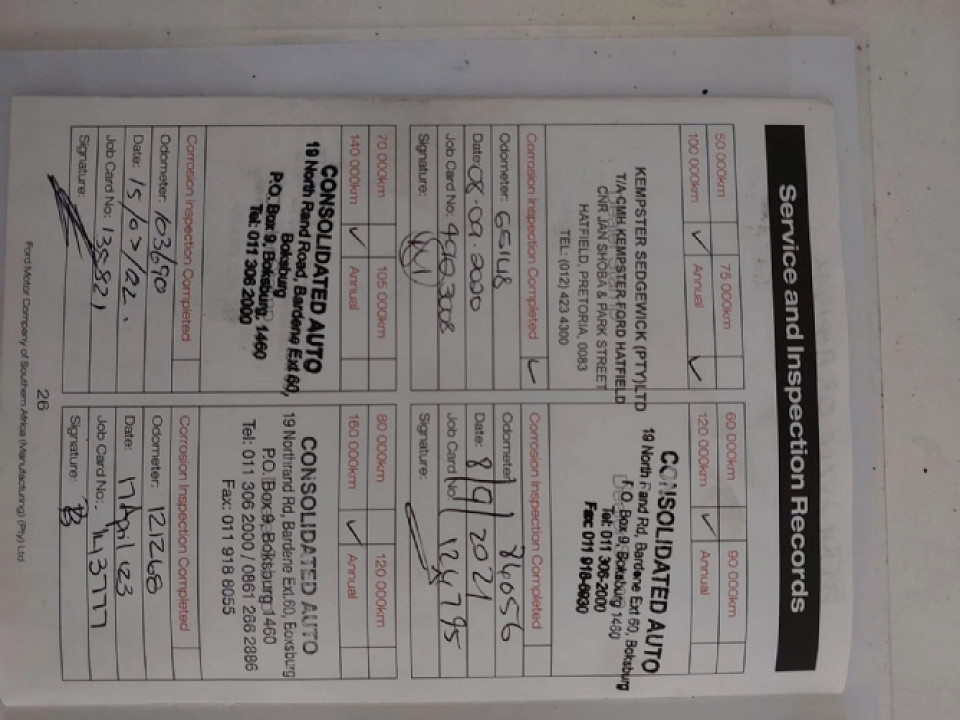 Service and Inspection Records
50 000km 75 000km
100 000km ✓ Annual ✓
KEMPSTER SEDGEWICK (PTY) LTD
T/A CMH KEMPSTER FORD HATFIELD
CNR JAN SHOBA & PARK STREET
HATFIELD, PRETORIA, 0083
TEL: (012) 423 4300
Corrosion Inspection Completed ✓
Odometer: 65148
Date: 08.09.2020
Job Card No:
Signature:
60 000km 90 000km
120 000km ✓ Annual
CONSOLIDATED AUTO
19 North Rand Rd, Bardene Ext 60, Boksburg
P.O. Box 9, Boksburg 1460
Tel: 011 306-2000
Fax: 011 918-6930
Corrosion Inspection Completed
Odometer: 84056
Date: 8/9/2021
Job Card No: 124795
Signature:
70 000km 105 000km
140 000km ✓ Annual
CONSOLIDATED AUTO
19 North Rand Road, Bardene Ext 60,
Boksburg
P.O. Box 9, Boksburg, 1460
Tel: 011 306 2000
Corrosion Inspection Completed
Odometer: 103690
Date: 15/07/22.
Job Card No: 135821
Signature:
80 000km 120 000km
160 000km ✓ Annual
CONSOLIDATED AUTO
19 Northrand Rd, Bardene Ext.60, Boksburg
P.O. Box 9, Boksburg 1460
Tel: 011 306 2000 / 0861 266 2886
Fax: 011 918 8055
Corrosion Inspection Completed
Odometer: 121268
Date: 17 April 23
Job Card No: 143777
Signature:
26
Ford Motor Company of Southern Africa (Manufacturing) (Pty) Ltd